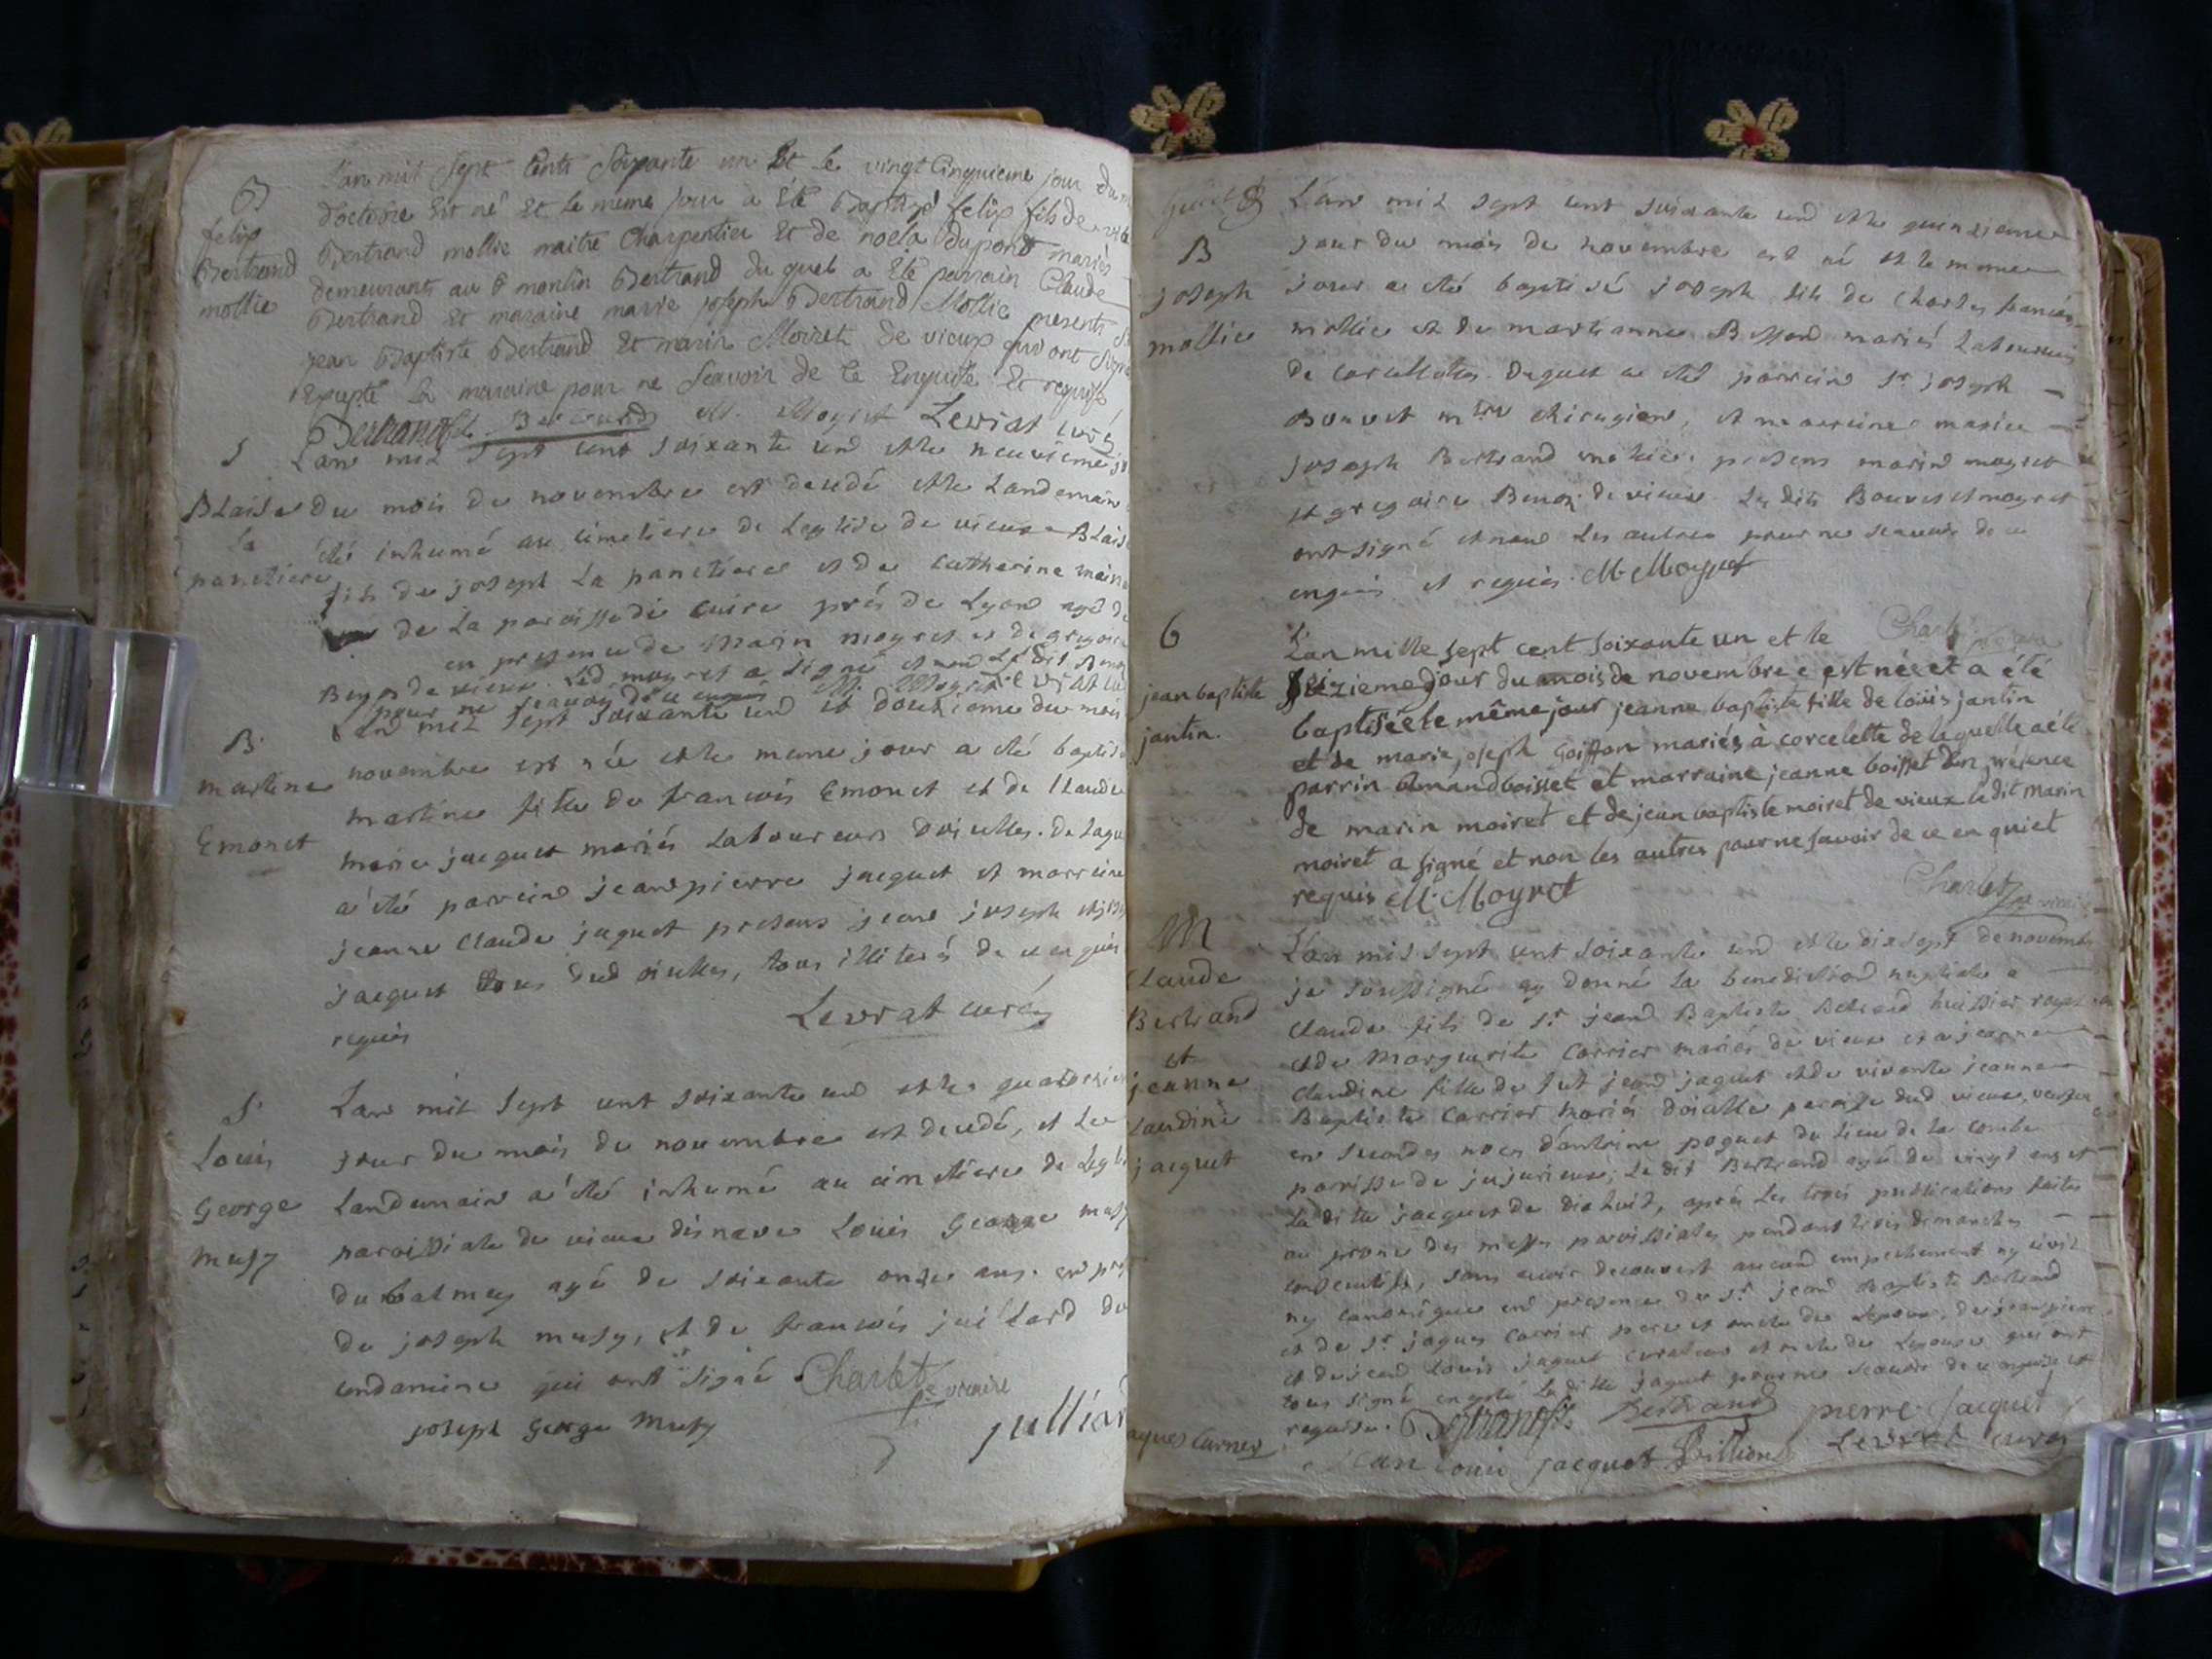 B
felix
Bertrand
mollie
L'an mil sept cents soixante un Et le vingt Cinquieme jour du
d'octobre Est né Et le meme jour a Eté Baptisé felix fils de
Bertrand mollie maitre Charpentier Et de noela Dupont mariés
demeurants au moulin Bertrand du quel a Eté parrain Claude
Bertrand Et maraine marie joseph Bertrand Mollie presents
jean Baptiste Bertrand Et marin Moiret de vieux qui ont signé
Excepté la maraine pour ne Scavoir de ce Enquise Et requise
Bertrand fils Bertrand M. Moyret Levrat curé
S
BLaise
La
panetiere
L'an mil sept cent soixante und et le neuvieme
du mois de novembre est decedé et le Landemain
été inhumé au cimetiere de Leglise de vieux BLaise
fils de joseph La panetiere et de Catherine
de La paroisse de cuire prés de Lyon agé de
en presence de Marin moyret et de gregoire
Benon de vieux. Led. moyret a signé et non Le dit Benon
pour ne scavoir de ce enquis M. Moyret Levrat cu
B.
martine
Emonet
L'an mil sept soixante und et douzieme du mois
novembre est née et le meme jour a été baptisé
martine fille de francois Emonet et de Claude
marie jacquet mariés Laboureurs doiselles. de Laque
a été parrein jean pierre jacquet et marreine
jeanne Claude jaquet presens jean joseph
jacquet tous dud oiselles, tous illiterés de ce enquis
requis
Levrat curé
S.
Louis
George
musy
L'an mil sept cent soixante und et le quatorzie
jour du mois de novembre est decedé, et Le
Landemain a été inhumé au cimetiere de Legli
paroissiale de vieux disnave Louis George musy
du balmey agé de soixante onze ans. en pre
de joseph musy, et de francois juillard du
condamine qui ont signé Charlet
pe vicaire
joseph George Musy
julliar
B
joseph
mollie
L'an mil sept cent soixante und et le quinzieme
jour du mois de novembre est né et le meme
jour a eté baptisé joseph fils de Charles francois
mollie et de marianne Boffard mariés Laboureurs
de corcelettes. Duquel a eté parrein Sr joseph
Bouvet mtre chirugien, et marreine marie
joseph Bertrand mollie. presens marin moyret
et gregoire Benon de vieux. Les dits Bouvet et moyret
ont signé et non Les autres pour ne scavoir de ce
enquis et requis. M. Moyret
Charlet
6
jean baptiste
jantin.
L'an mille sept cent soixante un et le
seizieme jour du mois de novembre e est née et a été
baptisée le même jour jeanne baptiste fille de loüis jantin
et de marie joseph Goiffon mariés à corcelette de laquelle a été
parrin amand boisset et marraine jeanne boisset En présence
de marin moiret et de jean baptiste moiret de vieux le dit marin
moiret a signé et non les autres pour ne savoir de ce en quiet
requis M. Moyret
Charlet
pe vicaire
M
Claude
Bertrand
et
jeanne
Laudine
jacquet
L'an mil sept cent soixante und et le dix sept de novembre
je soussigné ay donné La benediction nuptiale a
Claude fils de Sr jeand Baptiste Bertrand huissier royal
et de Marguerite Carrier mariés de vieux et a jeanne
Claudine fille de fut jeand jaquet et de vivante jeanne
Baptiste Carrier mariés doiselle paroisse dud vieux, veuve
en secondes noces d'antoine poguet du Lieu de La combe
parroisse de jujurieux; Le dit Bertrand agé de vingt ans et
La ditte jacquet de dix huit, aprés Les trois publications faites
au prone des messes parroissiales pendant trois dimanches
consecutifs, sans avoir decouvert aucund empechement ny civil
ny canonique end presence de Sr jeand Baptiste Bertrand
et de Sr jaques Carrier pere et oncle de Lepoux, de jean pierre
et de jeand Louis jaquet curateur et oncle de Lepouse qui ont
tous signé excepté La ditte jaquet pour ne scavoir de ce enquise et
requise. Bertrand fils Bertrand pierre jacquet
jaques Carrier jean Loui jacquet Billion Levrat curé